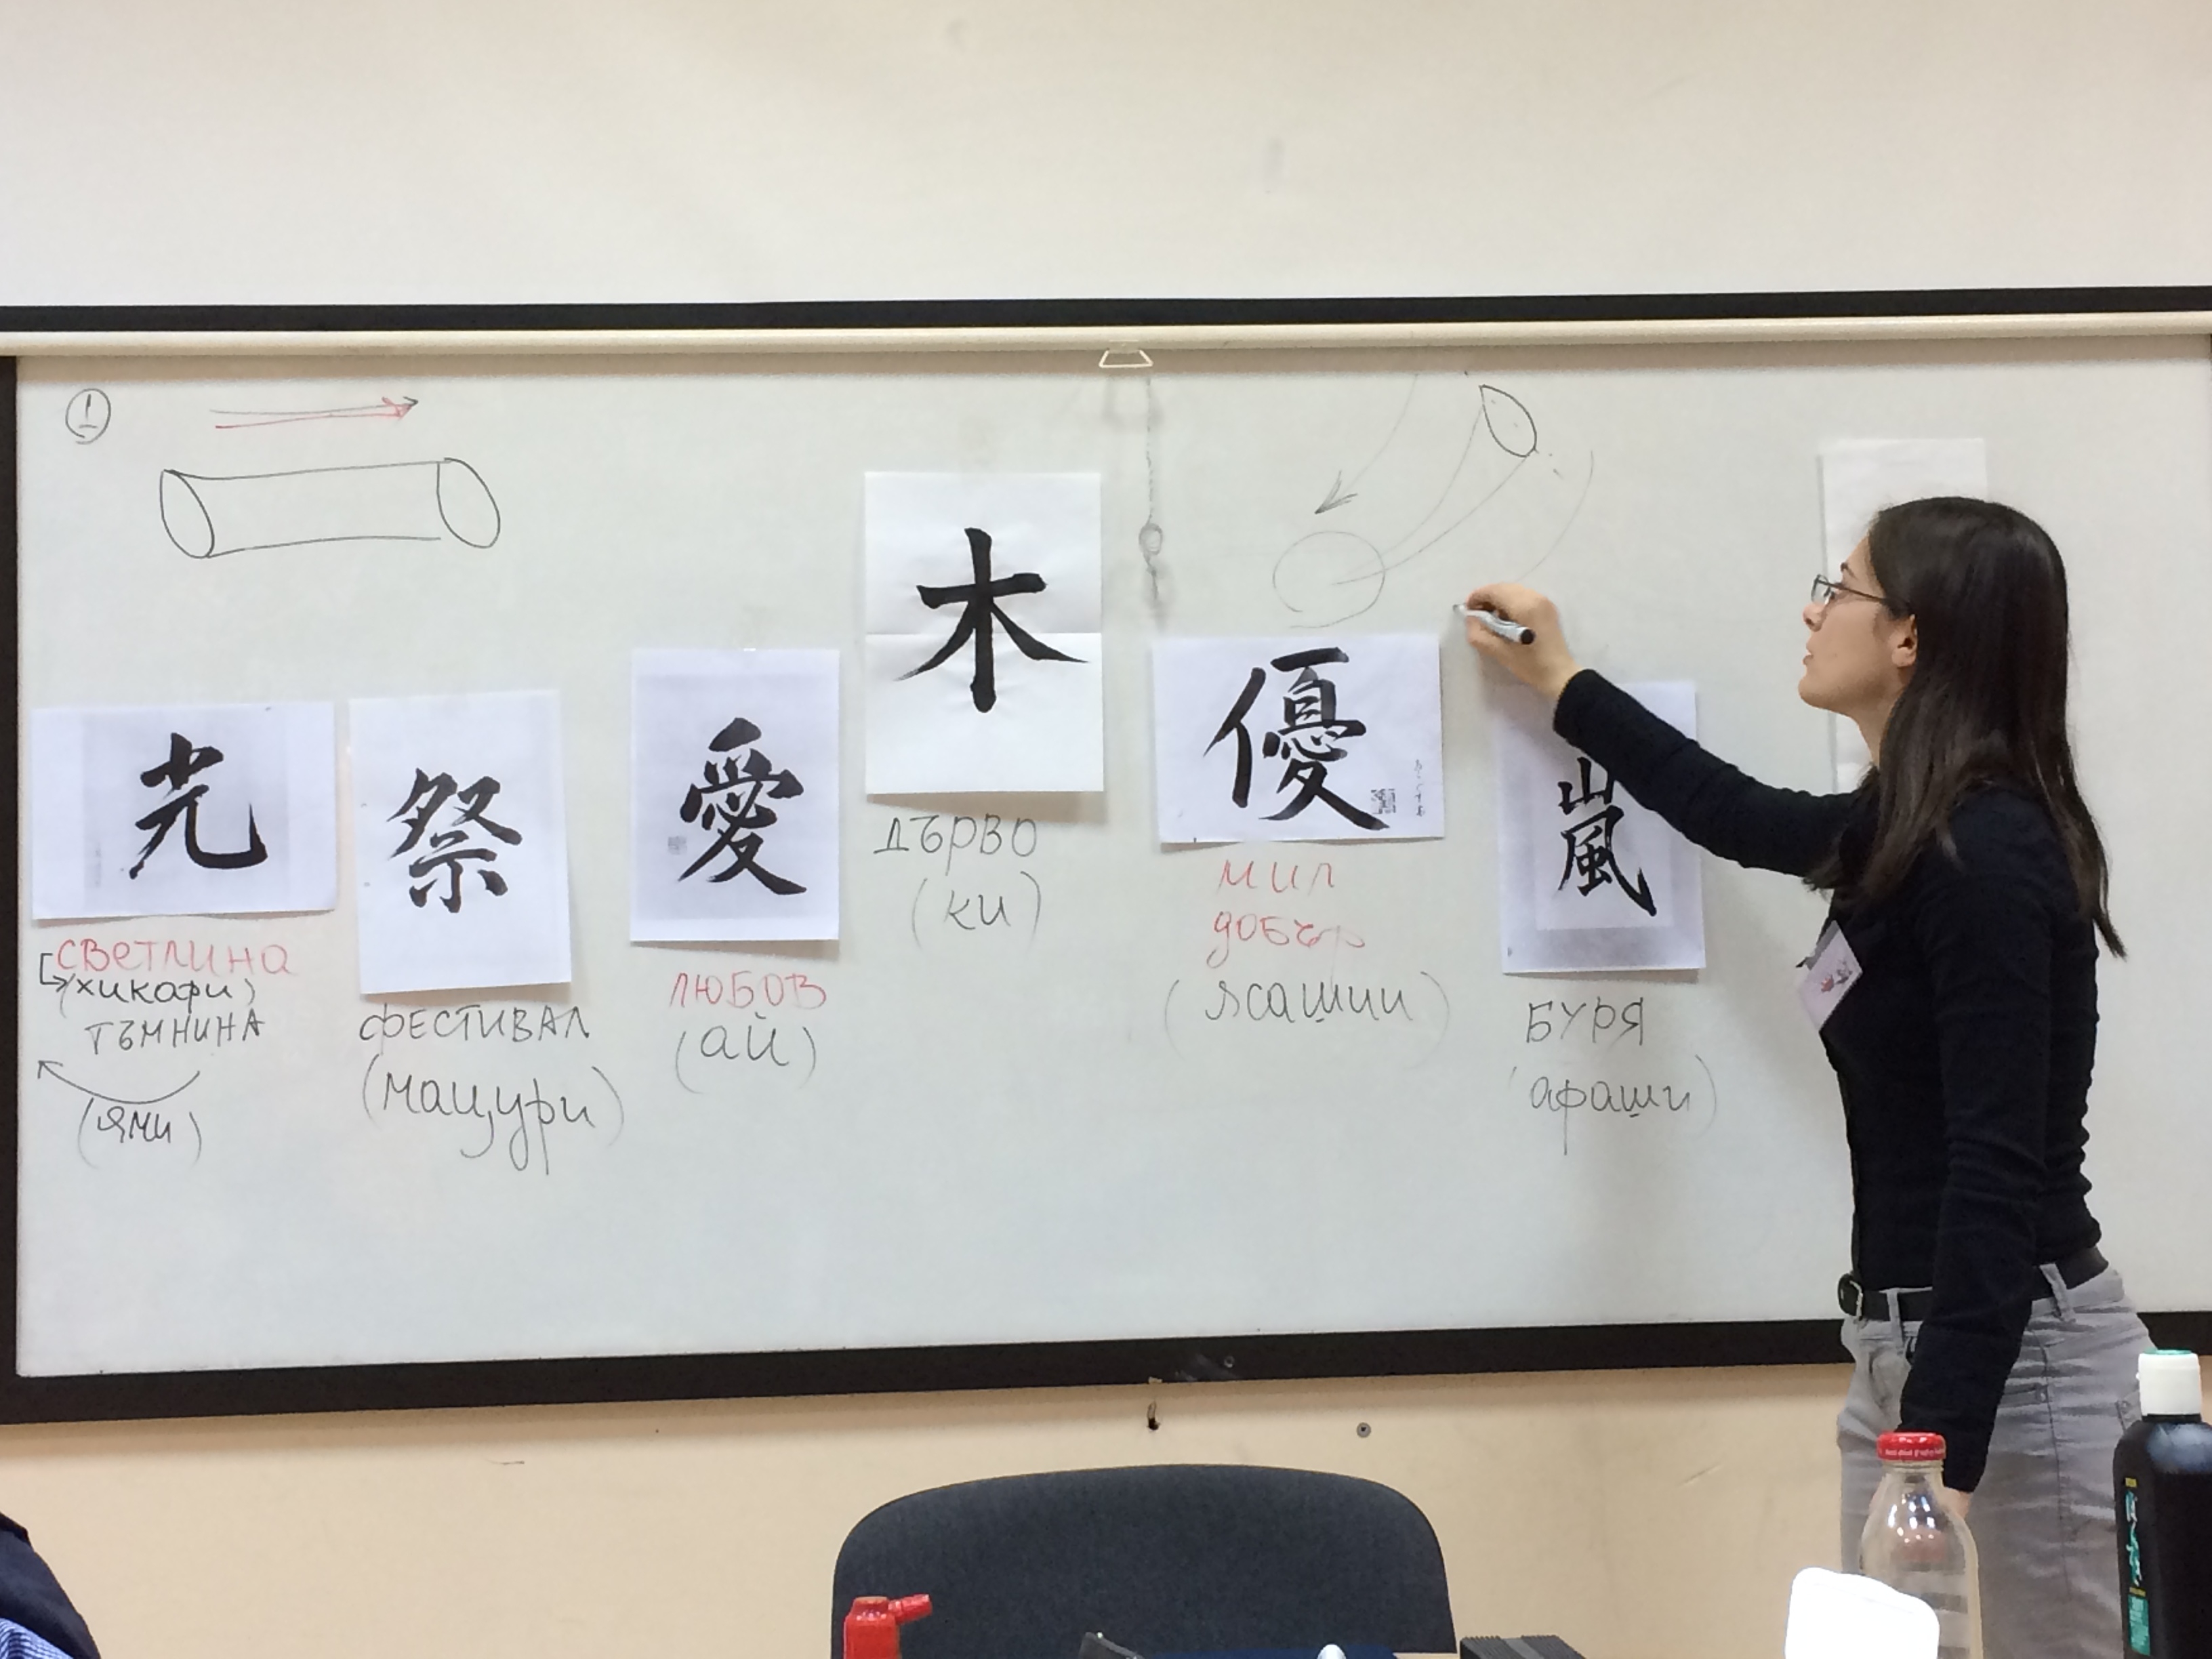 ①
光
祭
愛
木
優
嵐
светлина
(хикари)
тъмнина
(ями)
фестивал
(мацури)
любов
(ай)
дърво
(ки)
мил
добър
(ясашии)
буря
(араши)